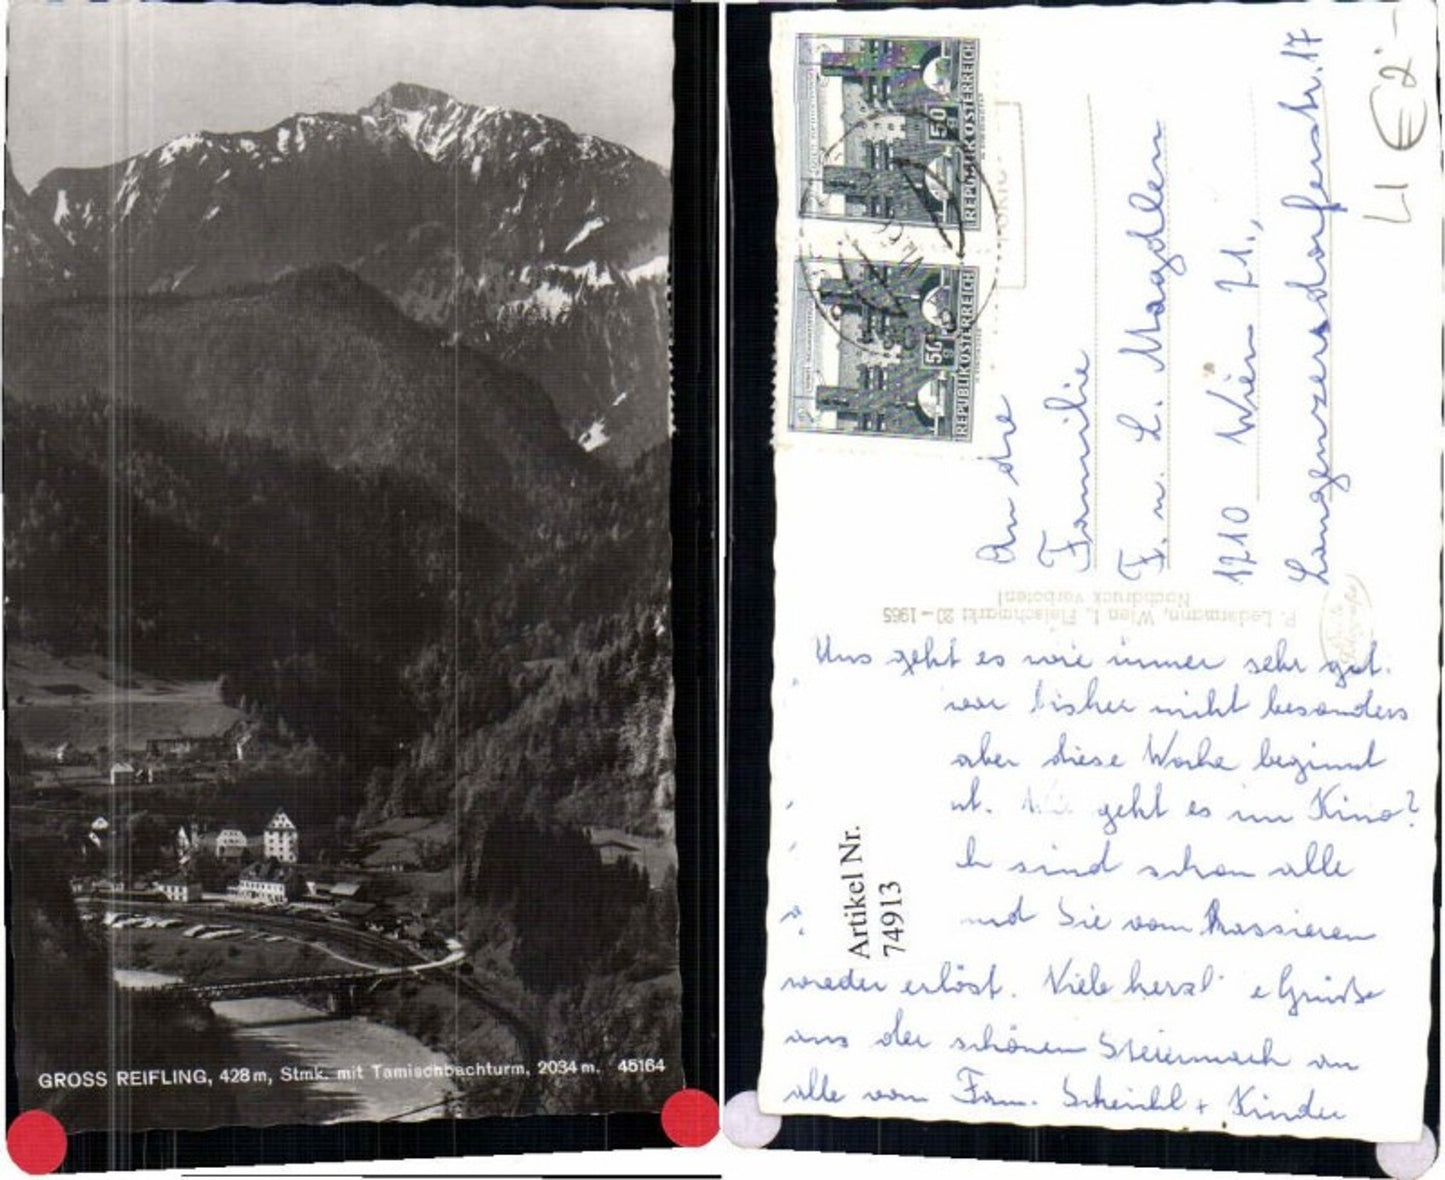 GROSS REIFLING, 428 m, Stmk. mit Tamischbachturm, 2034 m. 45164
REPUBLIK ÖSTERREICH
50 g
REPUBLIK ÖSTERREICH
50 g
LI € 2.-
An die
Familie
F. u. L. Magdlen
1210 Wien 21.,
Langenzersdorferstr. 17
P. Ledermann, Wien I, Fleischmarkt 20 - 1965
Nachdruck verboten!
Artikel Nr.
74913
Uns geht es wie immer sehr gut.
war bisher nicht besonders
aber diese Woche beginnt
geht es im Kino?
sind schon alle
und Sie vom Kassieren
wieder erlöst. Viele herzl e Grüße
aus der schönen Steiermark an
alle von Fam. Scheichl + Kinder